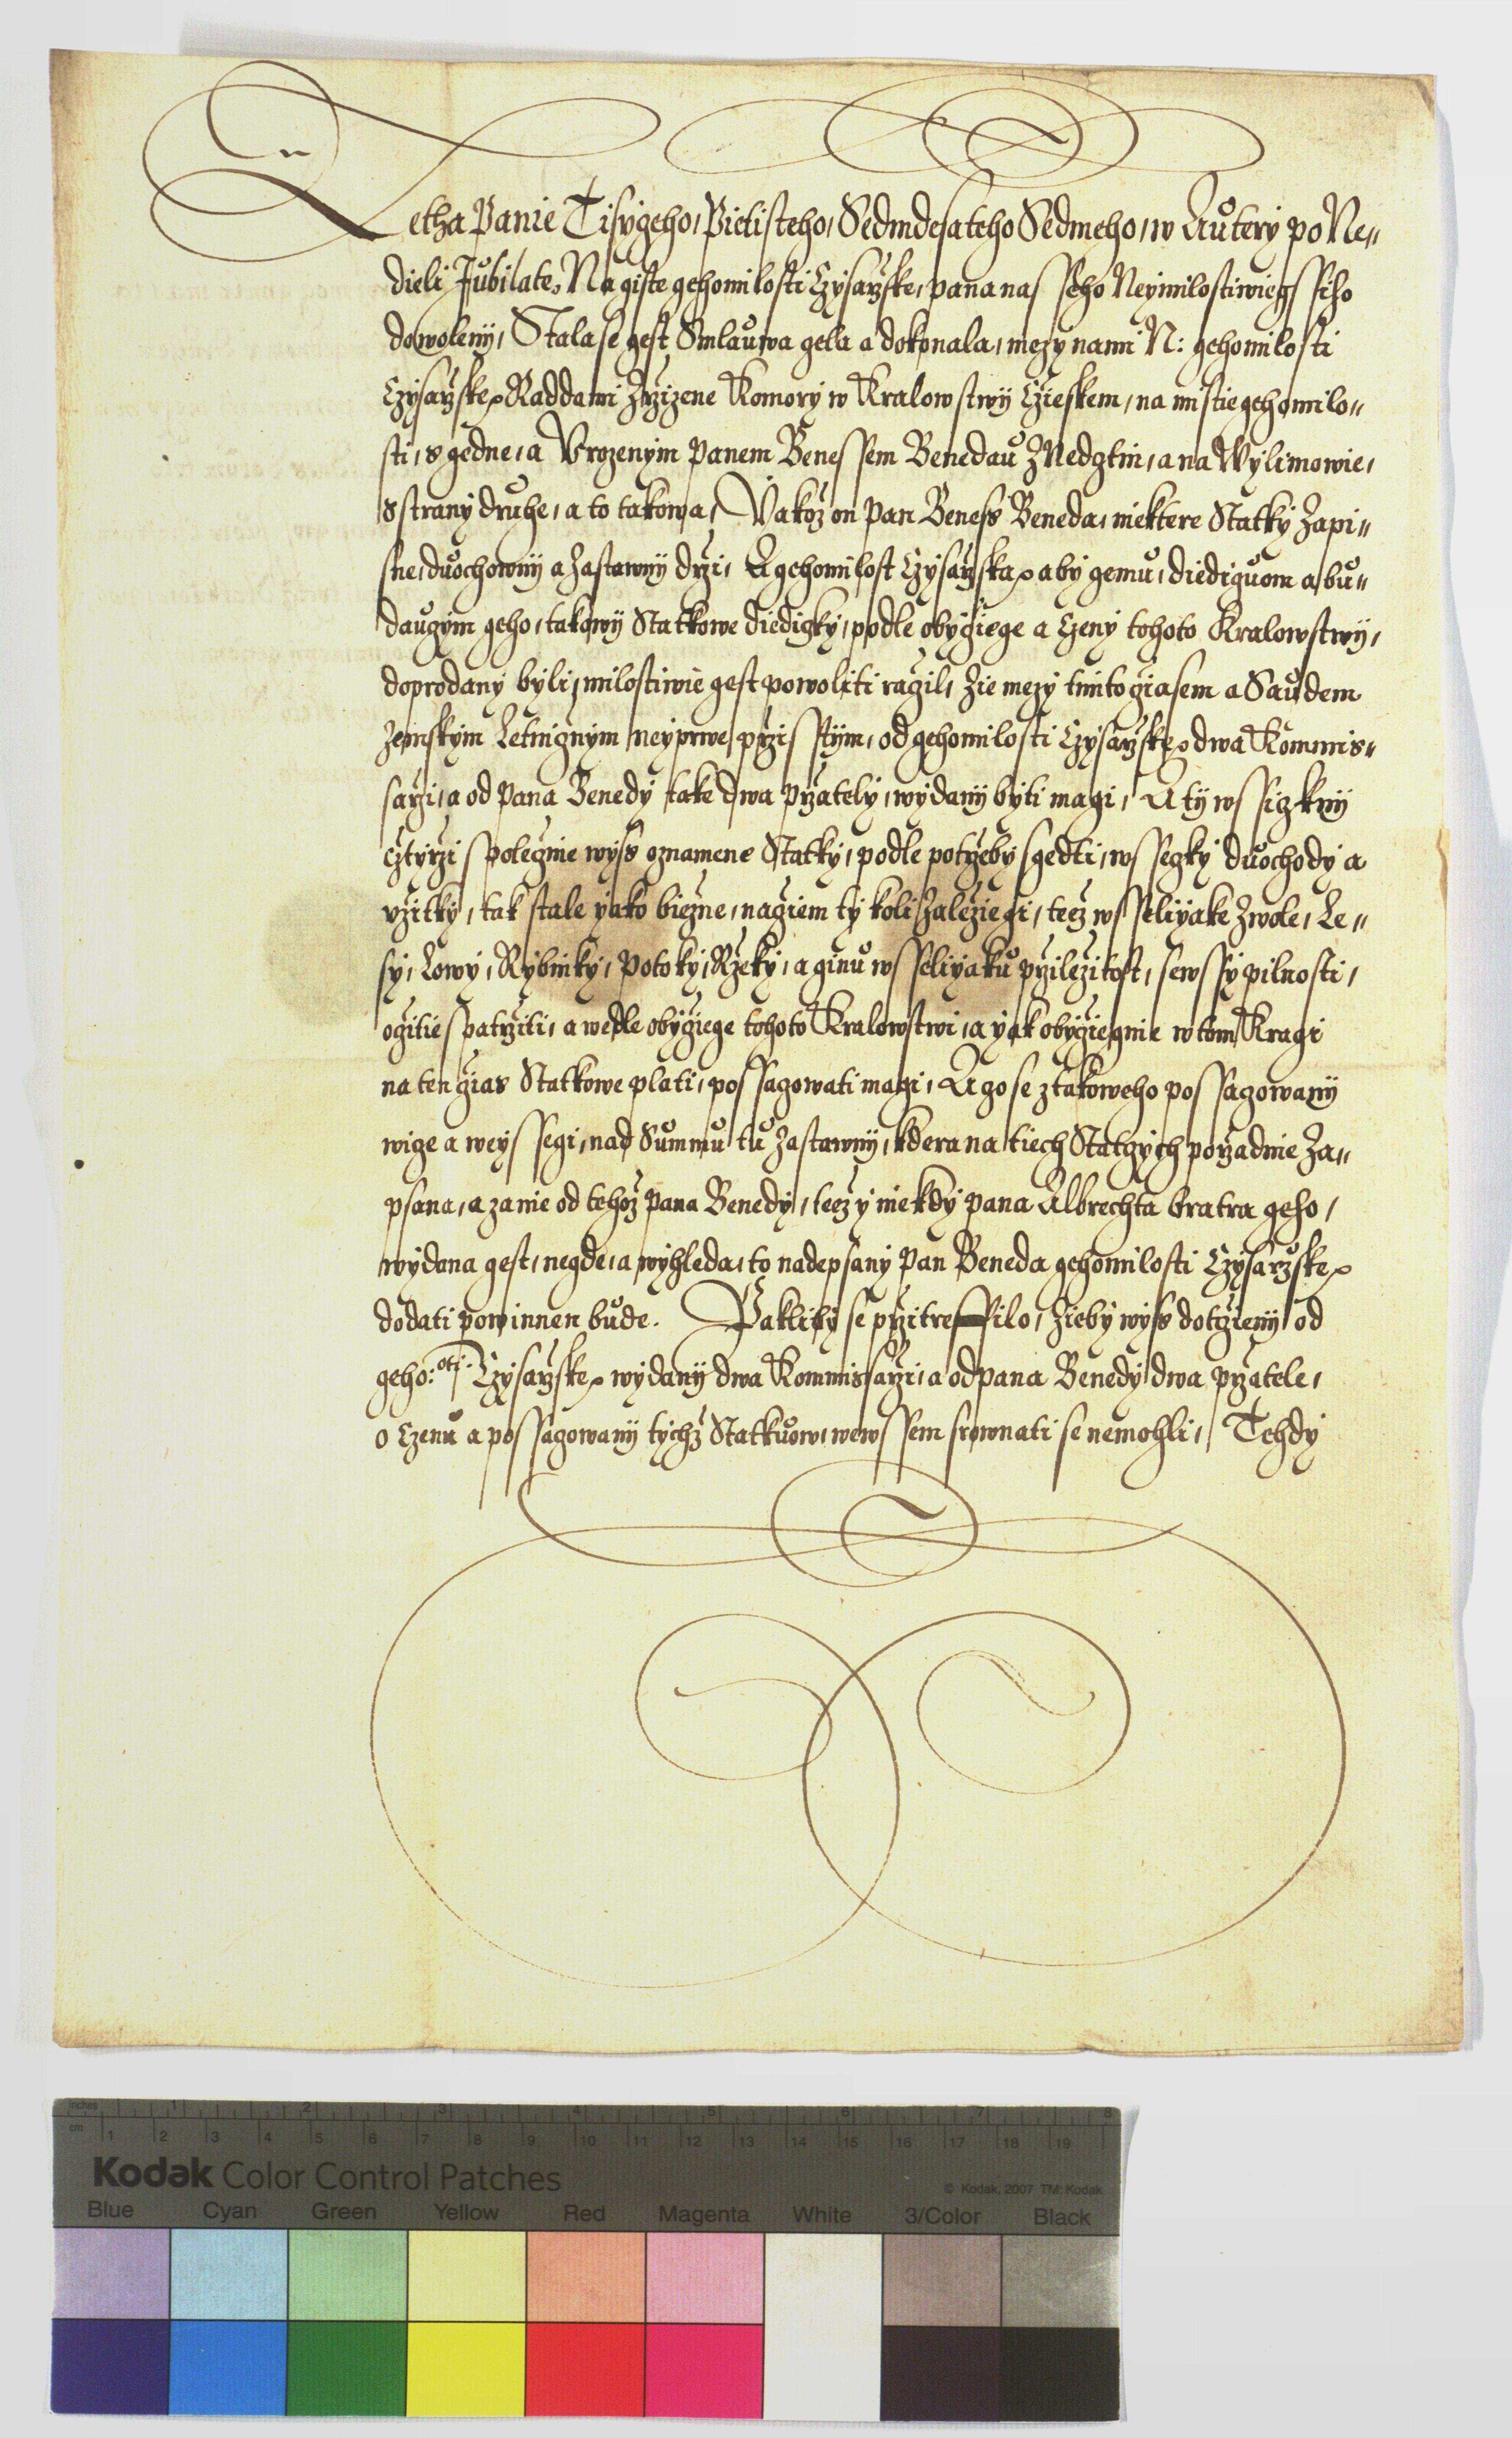 Letha Panie Tisyczeho, Pietisteho, Sedmdesateho Sedmeho, w Auttery po Ne-
dieli Jubilate, Na giste gehomilosti Czysarzske, pana nasseho Neymilostiwiegssiho
dowoleny, Stala se gest Smlauwa czela a dokonala, mezy nami N: gehomilosti
Czysarzske Raddami Zrzizene Komory w Kralowstwij Czieskem, na mistie gehomilo-
sti, s gedne, a Vrozenym panem Benessem Benedau Z Nedgtin, a na Wylimowie,
s strany druhe, a to takowa, Yakoz on pan Beness Beneda, niektere Statky Zapi-
sne, duochowny a Zastawny drzi, A gehomilost Czysarzska, aby gemu, diediczuom a bu-
dauczym geho, takowij Statkowe diediczky, podle obyczege a czeny tohoto Kralowstwij,
doprodany byli, milostiwie gest powoliti raczil, Zie mezy timto cziasem a Saudem
Zemskym Letnicznym neyprwe przisstijm, od gehomilosti Czysarzske dwa Kommis-
sarzi, a od pana Benedy take dwa przately, wydany byti magi, A tij wssiczkny
cztyrzi spolecznie wyss oznamene Statky, podle potrzeby sgedti, wsseczky duochody a
vzitky, tak stale yako biezne, naczem ty koli Zaleziegi, teez wsseliyake Zwole, Le-
sy, Lowy, Rybniky, potoky, Rzeky, a ginu wsseliyaku przilezitost, se wssy pilnosti,
oczitie spatrziti, a wedle obyczege tohoto Kralowstwi, a yak obyczegnie w tom Kragi
na ten czias Statkowe plati, possaczowati magi, A czo se z takoweho possaczowany
wicze a weyssegi, nad Summu tu Zastawny, kdera na tiech Statczych porzadnie Za-
psana, a za nie od tehoz pana Benedy, teez y niekdy pana Albrechta bratra geho,
wydana gest, negde, a wyhleda, to nadepsany pan Beneda gehomilosti Czysarzske
dodati powinnen bude. Pakliby se przitreffilo, Zieby wyss dotczieny od
geho: oti. Czysarzske wydany dwa Kommissarzi, a od pana Benedy dwa przatele,
o czenu a possaczowany tychz Statkuow, we wssem srownati se nemohli, Tehdy
inches 1 2 3 4 5 6 7 8
cm 1 2 3 4 5 6 7 8 9 10 11 12 13 14 15 16 17 18 19
Kodak Color Control Patches
© Kodak, 2007 TM: Kodak
Blue Cyan Green Yellow Red Magenta White 3/Color Black